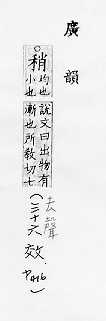 廣韻
稍
均也
小也
說文曰出物有
漸也所教切七
去聲
(三十六效 P416)